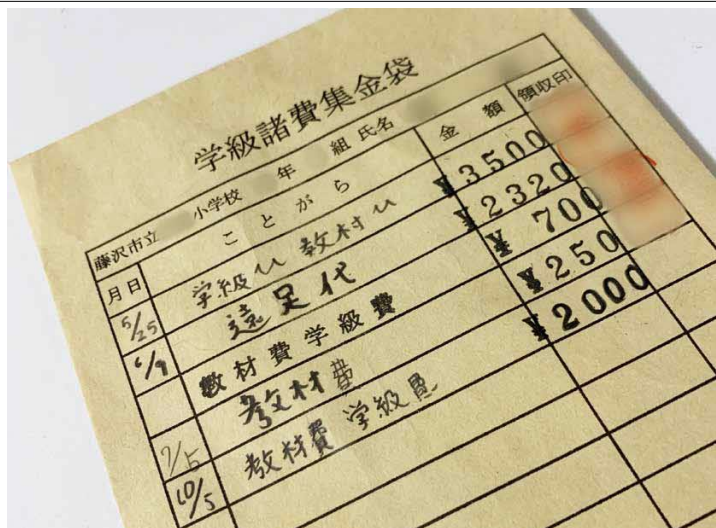 学級諸費集金袋
藤沢市立 小学校 年 組 氏名
月日 ことがら 金額 領収印
5/25 学級ひ 教材ひ ¥3500
6/9 遠足代 ¥2320
教材費学級費 ¥700
7/5 教材費 ¥250
10/5 教材費 学級費 ¥2000